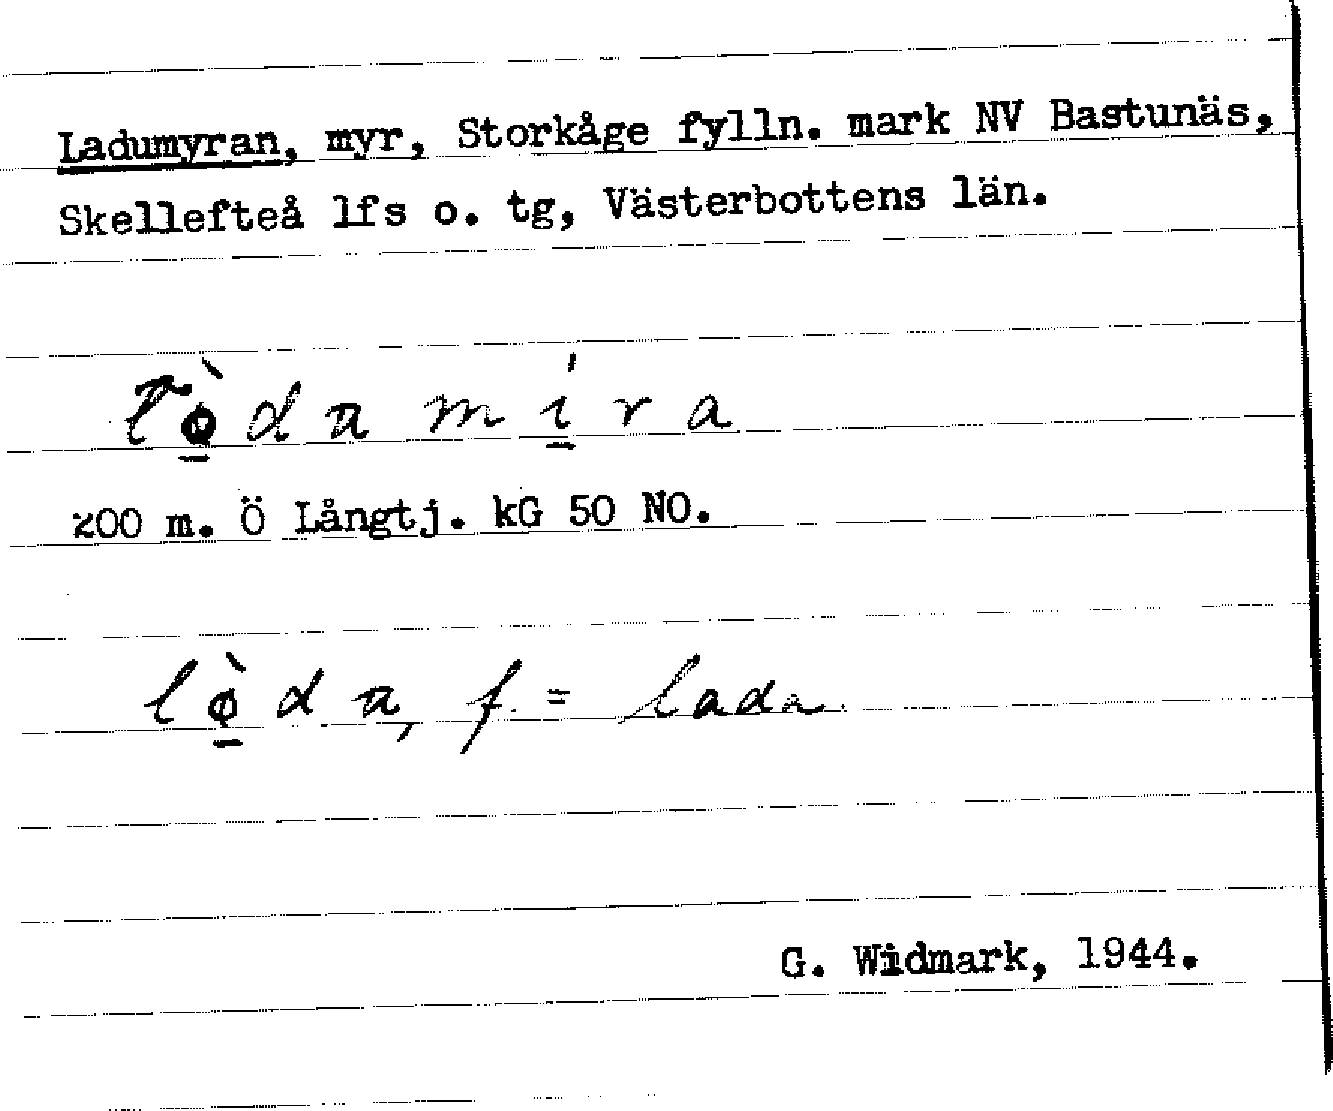 Ladumyran, myr, Storkåge fylln. mark NV Bastunäs,
Skellefteå lfs o. tg, Västerbottens län.
lø̱̀da mí̱ra
200 m. Ö Långtj. kG 50 NO.
lø̱̀da, f. = lada
G. Widmark, 1944.